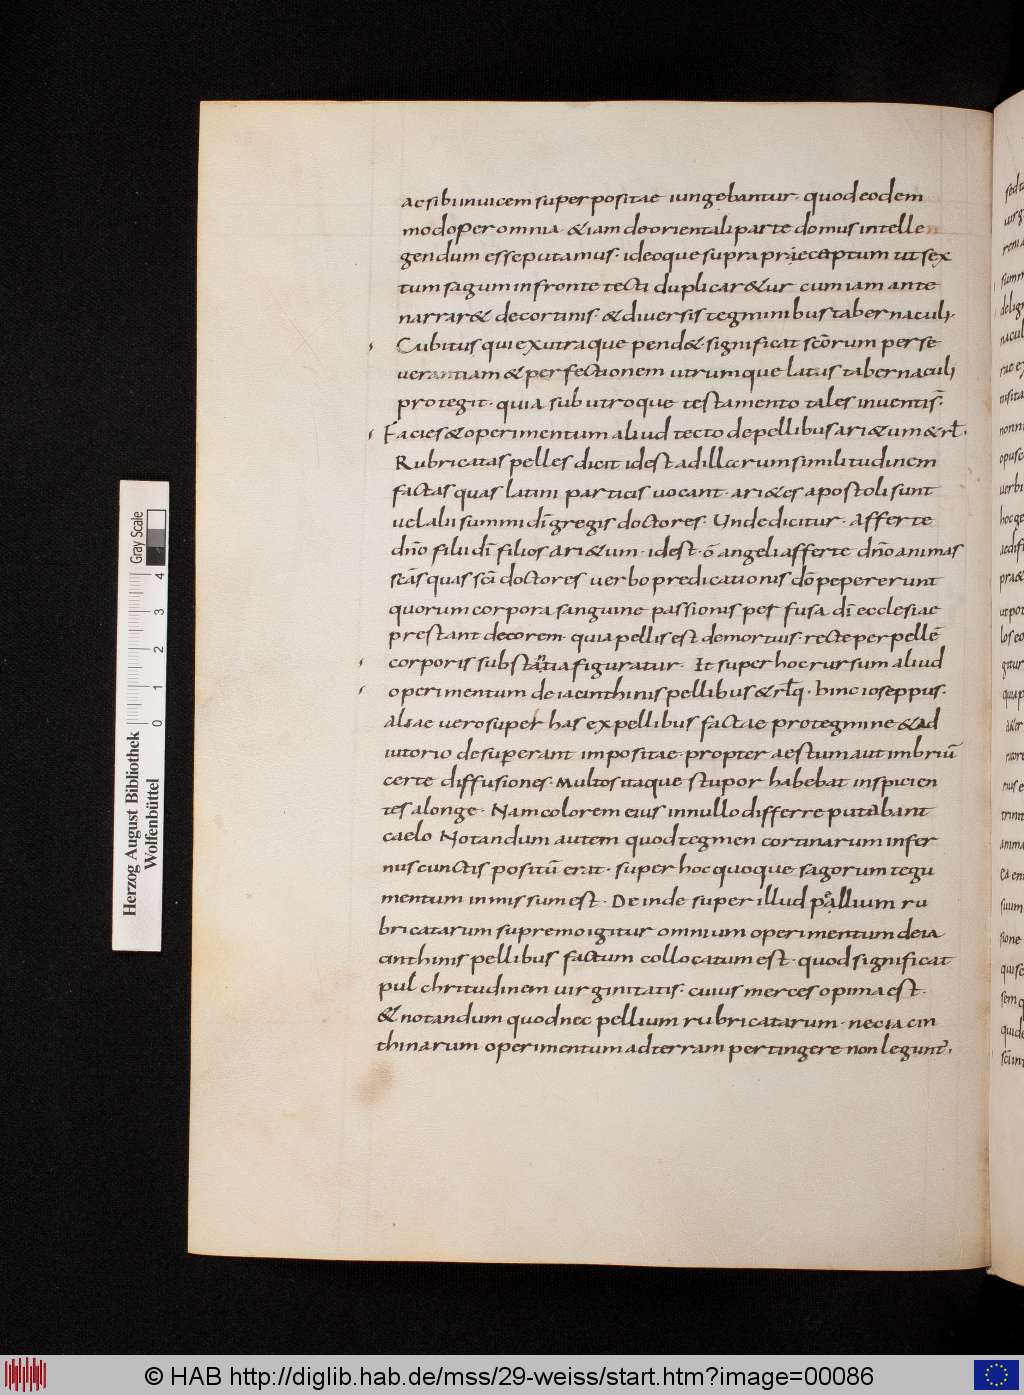 ac sibi inuicem superpositae iungebantur· quod eodem
modo per omnia & iam de orientali parte domus intelle
gendum esse putamus· ideoque supra praeceptum ut sex
tum sagum in fronte tecti duplicar&ur cum iam ante
narrar& de cortinis· & diuersis tegminibus tabernaculi·
Cubitus qui ex utraque pend&· significat scōrum perse
uerantiam & perfectionem utrumque latus tabernaculi
protegit· quia sub utroque testamento tales inuentis̄·
Facies & operimentum aliud tecto de pellibus ari&um & rł·
Rubricatas pelles dicit id est ad illarum similitudinem
factas quas latini particis uocant· ari&es apostoli sunt
uel alii summi dī gregis doctores· Unde dicitur· afferte
dño filii dī filios ari&um· id est· ō angeli afferte dño animas
scās quas scī doctores uerbo predicationis dō pepererunt
quorum corpora sanguine passionis perfusa dī ecclesiae
prestant decorem· quia pellis est de mortuis· recte per pellē
corporis substantia figuratur· It super hoc rursum aliud
operimentum de iacinthinis pellibus & rłq· hinc ioseppus·
aliae uero super has ex pellibus factae protegmine & ad
iutorio desuper erant impositae· propter aestum aut imbriū
certe diffusiones· Multos itaque stupor habebat inspicien
tes a longe· Nam colorem eius in nullo differre putabant
caelo Notandum autem quod tegmen cortinarum infer
nus cunctis positū erat· super hoc quoque sagorum tegu
mentum inmissum est· Deinde super illud pellium ru
bricatarum supremo igitur omnium operimentum de ia
cinthinis pellibus factum collocatum est· quod significat
pulchritudinem uirginitatis· cuius merces opima est·
& notandum quod nec pellium rubricatarum· nec iacin
thinarum operimentum ad terram pertingere non legunt̄·
Herzog August Bibliothek
Wolfenbüttel
Gray Scale
0 1 2 3 4
© HAB http://diglib.hab.de/mss/29-weiss/start.htm?image=00086